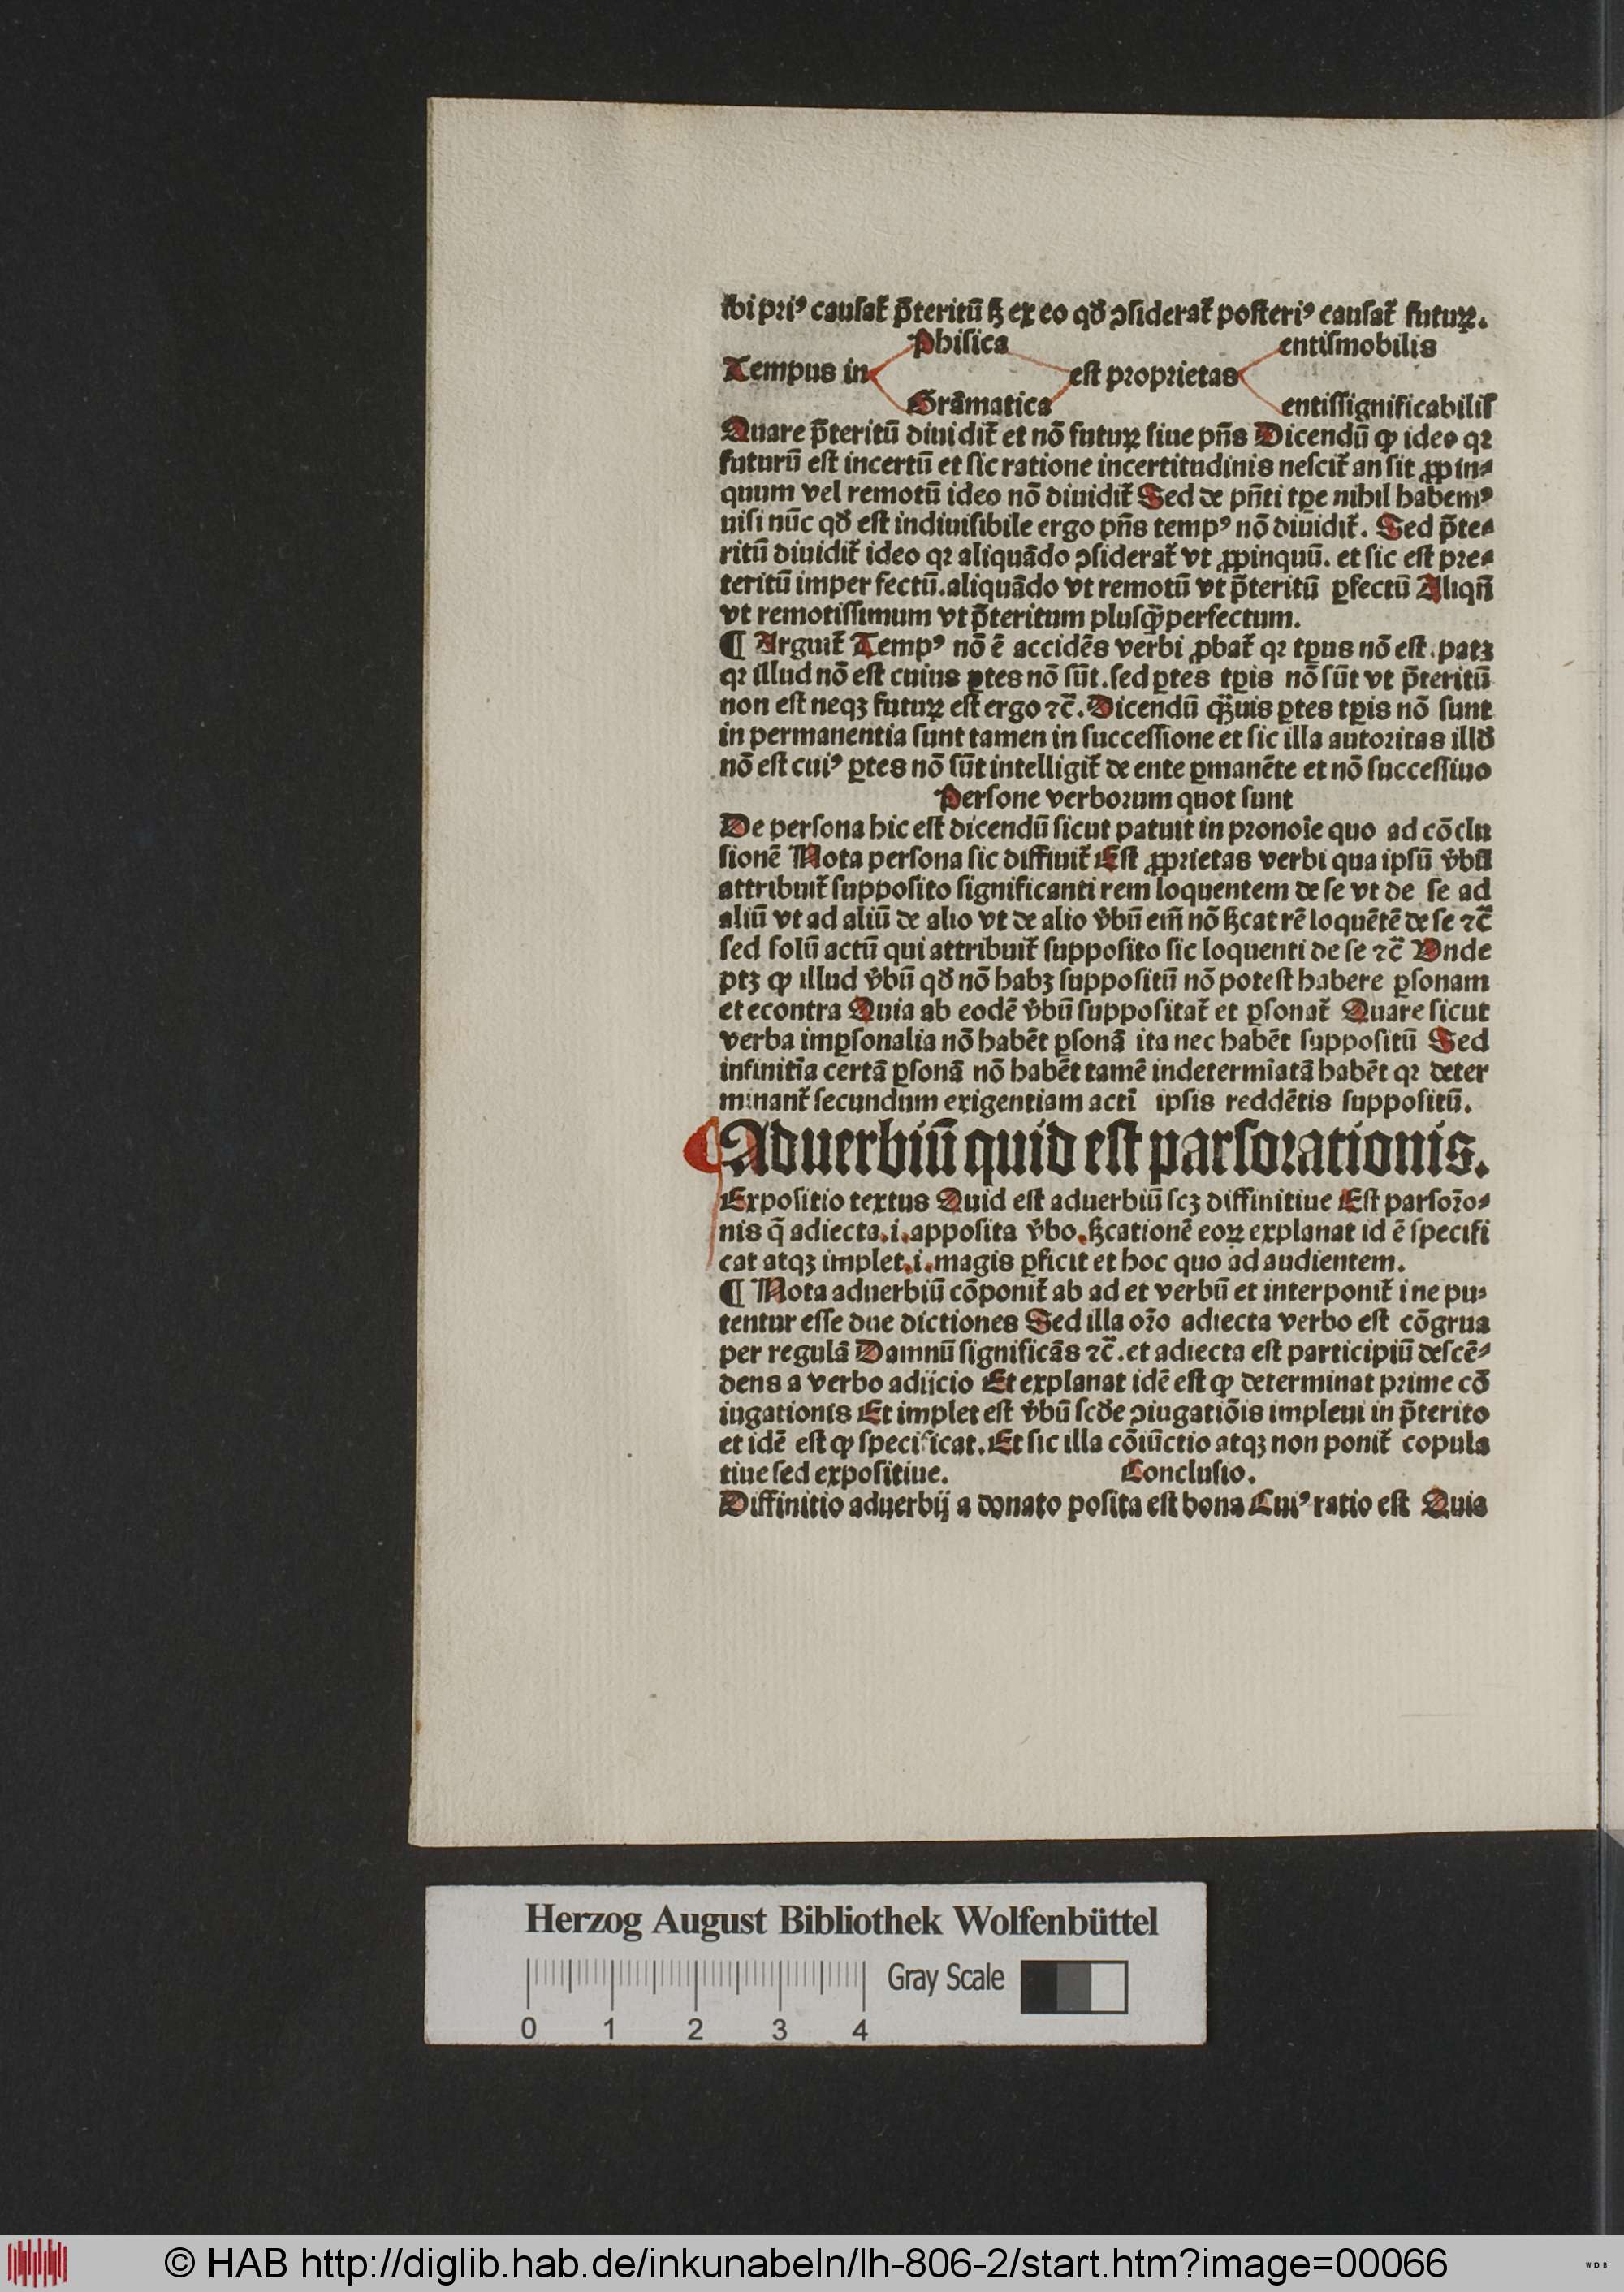 ubi pri⁹ causat᷑ p̄teritū sꝫ ex eo qd̕ ꝯsiderat᷑ posteri⁹ causat᷑ futuꝝ.
Phisica entismobilis
Tempus in est proprietas
Grāmatica entissignificabilis
Quare p̄teritū diuidit᷑ et nō futuꝝ siue pn̄s Dicendū ꝙ ideo qꝛ
futurū est incertū et sic ratione incertitudinis nescit᷑ an sit ꝓpin⸗
quum vel remotū ideo nō diuidit᷑ Sed de pn̄ti tꝑe nihil habem⁹
nisi nūc qd̕ est indiuisibile ergo pn̄s temp⁹ nō diuidit᷑. Sed p̄te⸗
ritū diuidit᷑ ideo qꝛ aliquādo ꝯsiderat᷑ vt ꝓpinquū. et sic est pre⸗
teritū imperfectū. aliquādo vt remotū vt p̄teritū ꝑfectū Aliqn̄
vt remotissimum vt p̄teritum plusqᷓperfectum.
¶ Arguit᷑ Temp⁹ nō ē accidēs verbi ꝓbat᷑ qꝛ tp̄us nō est. patꝫ
qꝛ illud nō est cuius ꝑtes nō sūt. sed ꝑtes tꝑis nō sūt vt p̄teritū
non est neqꝫ futuꝝ est ergo ⁊c̄. Dicendū qᷓuis ꝑtes tꝑis nō sunt
in permanentia sunt tamen in successione et sic illa autoritas illd̕
nō est cui⁹ ꝑtes nō sūt intelligit᷑ de ente ꝑmanēte et nō successiuo
Persone verborum quot sunt
De persona hic est dicendū sicut patuit in pronoīe quo ad cōclu
sionē Nota persona sic diffinit᷑ Est ꝓprietas verbi qua ipsū v̕bū
attribuit᷑ supposito significanti rem loquentem de se vt de se ad
aliū vt ad aliū de alio vt de alio v̕bū em̄ nō sꝫcat rē loquētē de se ⁊c̄
sed solū actū qui attribuit᷑ supposito sic loquenti de se ⁊c̄ Unde
ptꝫ ꝙ illud v̕bū qd̕ nō habꝫ suppositū nō potest habere ꝑsonam
et econtra Quia ab eodē v̕bū suppositat᷑ et ꝑsonat᷑ Quare sicut
verba imꝑsonalia nō habēt ꝑsonā ita nec habēt suppositū Sed
infinitīa certā ꝑsonā nō habēt tamē indetermīatā habēt qꝛ deter
minant᷑ secundum exigentiam actī ipsis reddētis suppositū.
Aduerbiū quid est parsorationis.
Expositio textus Quid est aduerbiū scꝫ diffinitiue Est parsor̄o⸗
nis q̄ adiecta. i. apposita v̕bo. sꝫcationē eoꝝ explanat id ē specifi
cat atqꝫ implet. i. magis ꝑficit et hoc quo ad audientem.
¶ Nota aduerbiū cōponit᷑ ab ad et verbū et interponit᷑ i ne pu⸗
tentur esse due dictiones Sed illa or̄o adiecta verbo est cōgrua
per regulā Damnū significās ⁊c̄. et adiecta est participiū descē⸗
dens a verbo adijcio Et explanat idē est ꝙ determinat prime cō
iugationis Et implet est v̕bū scd̕e ꝯiugatiōis impleui in p̄terito
et idē est ꝙ specificat. Et sic illa cōiūctio atqꝫ non ponit᷑ copula
tiue sed expositiue. Conclusio.
Diffinitio aduerbij a donato posita est bona Cui⁹ ratio est Quia
Herzog August Bibliothek Wolfenbüttel
Gray Scale
0 1 2 3 4
© HAB http://diglib.hab.de/inkunabeln/lh-806-2/start.htm?image=00066
WDB